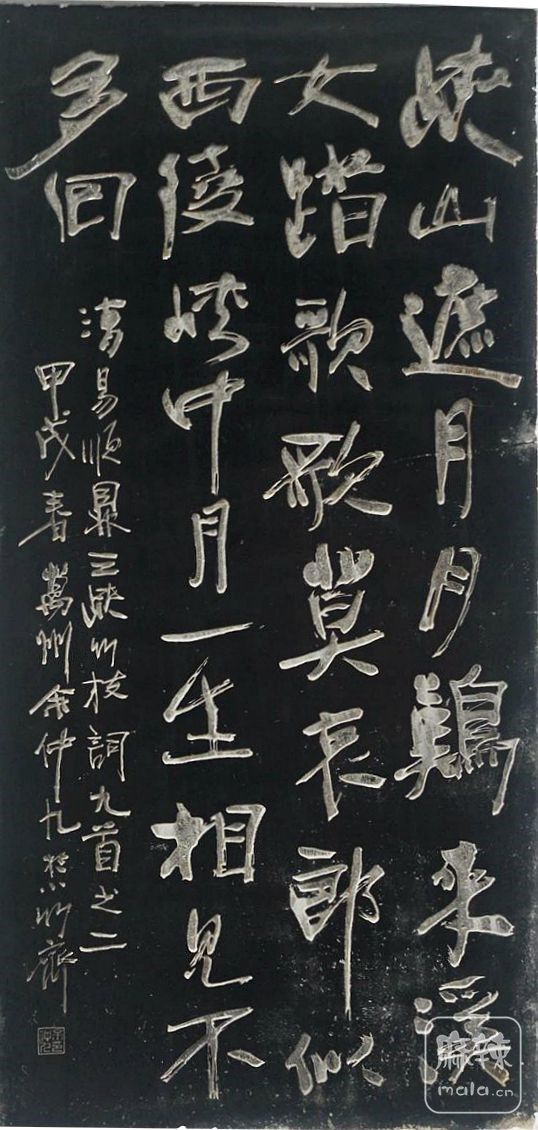 峽山遮月月難来溪
女踏歌歌莫哀郎似
西陵峽中月一生相見不
多回
清易順鼎三峽竹枝詞九首之二
甲戌春萬州余仲九於竹齋
麻辣
mala.cn